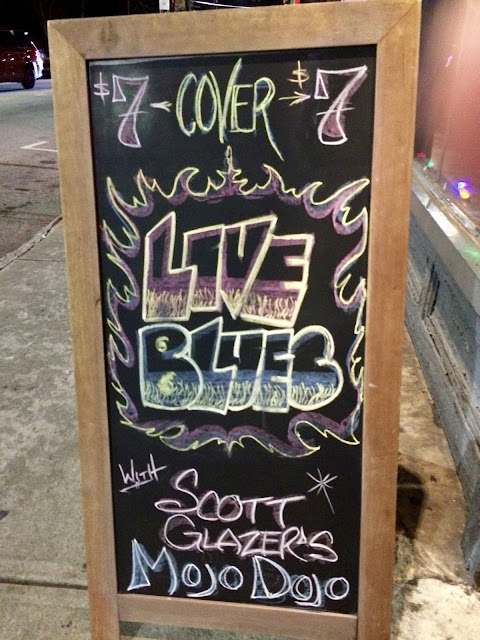 $7 COVER $7
LIVE
BLUES
WITH
SCOTT
GLAZER'S
MOJO DOJO